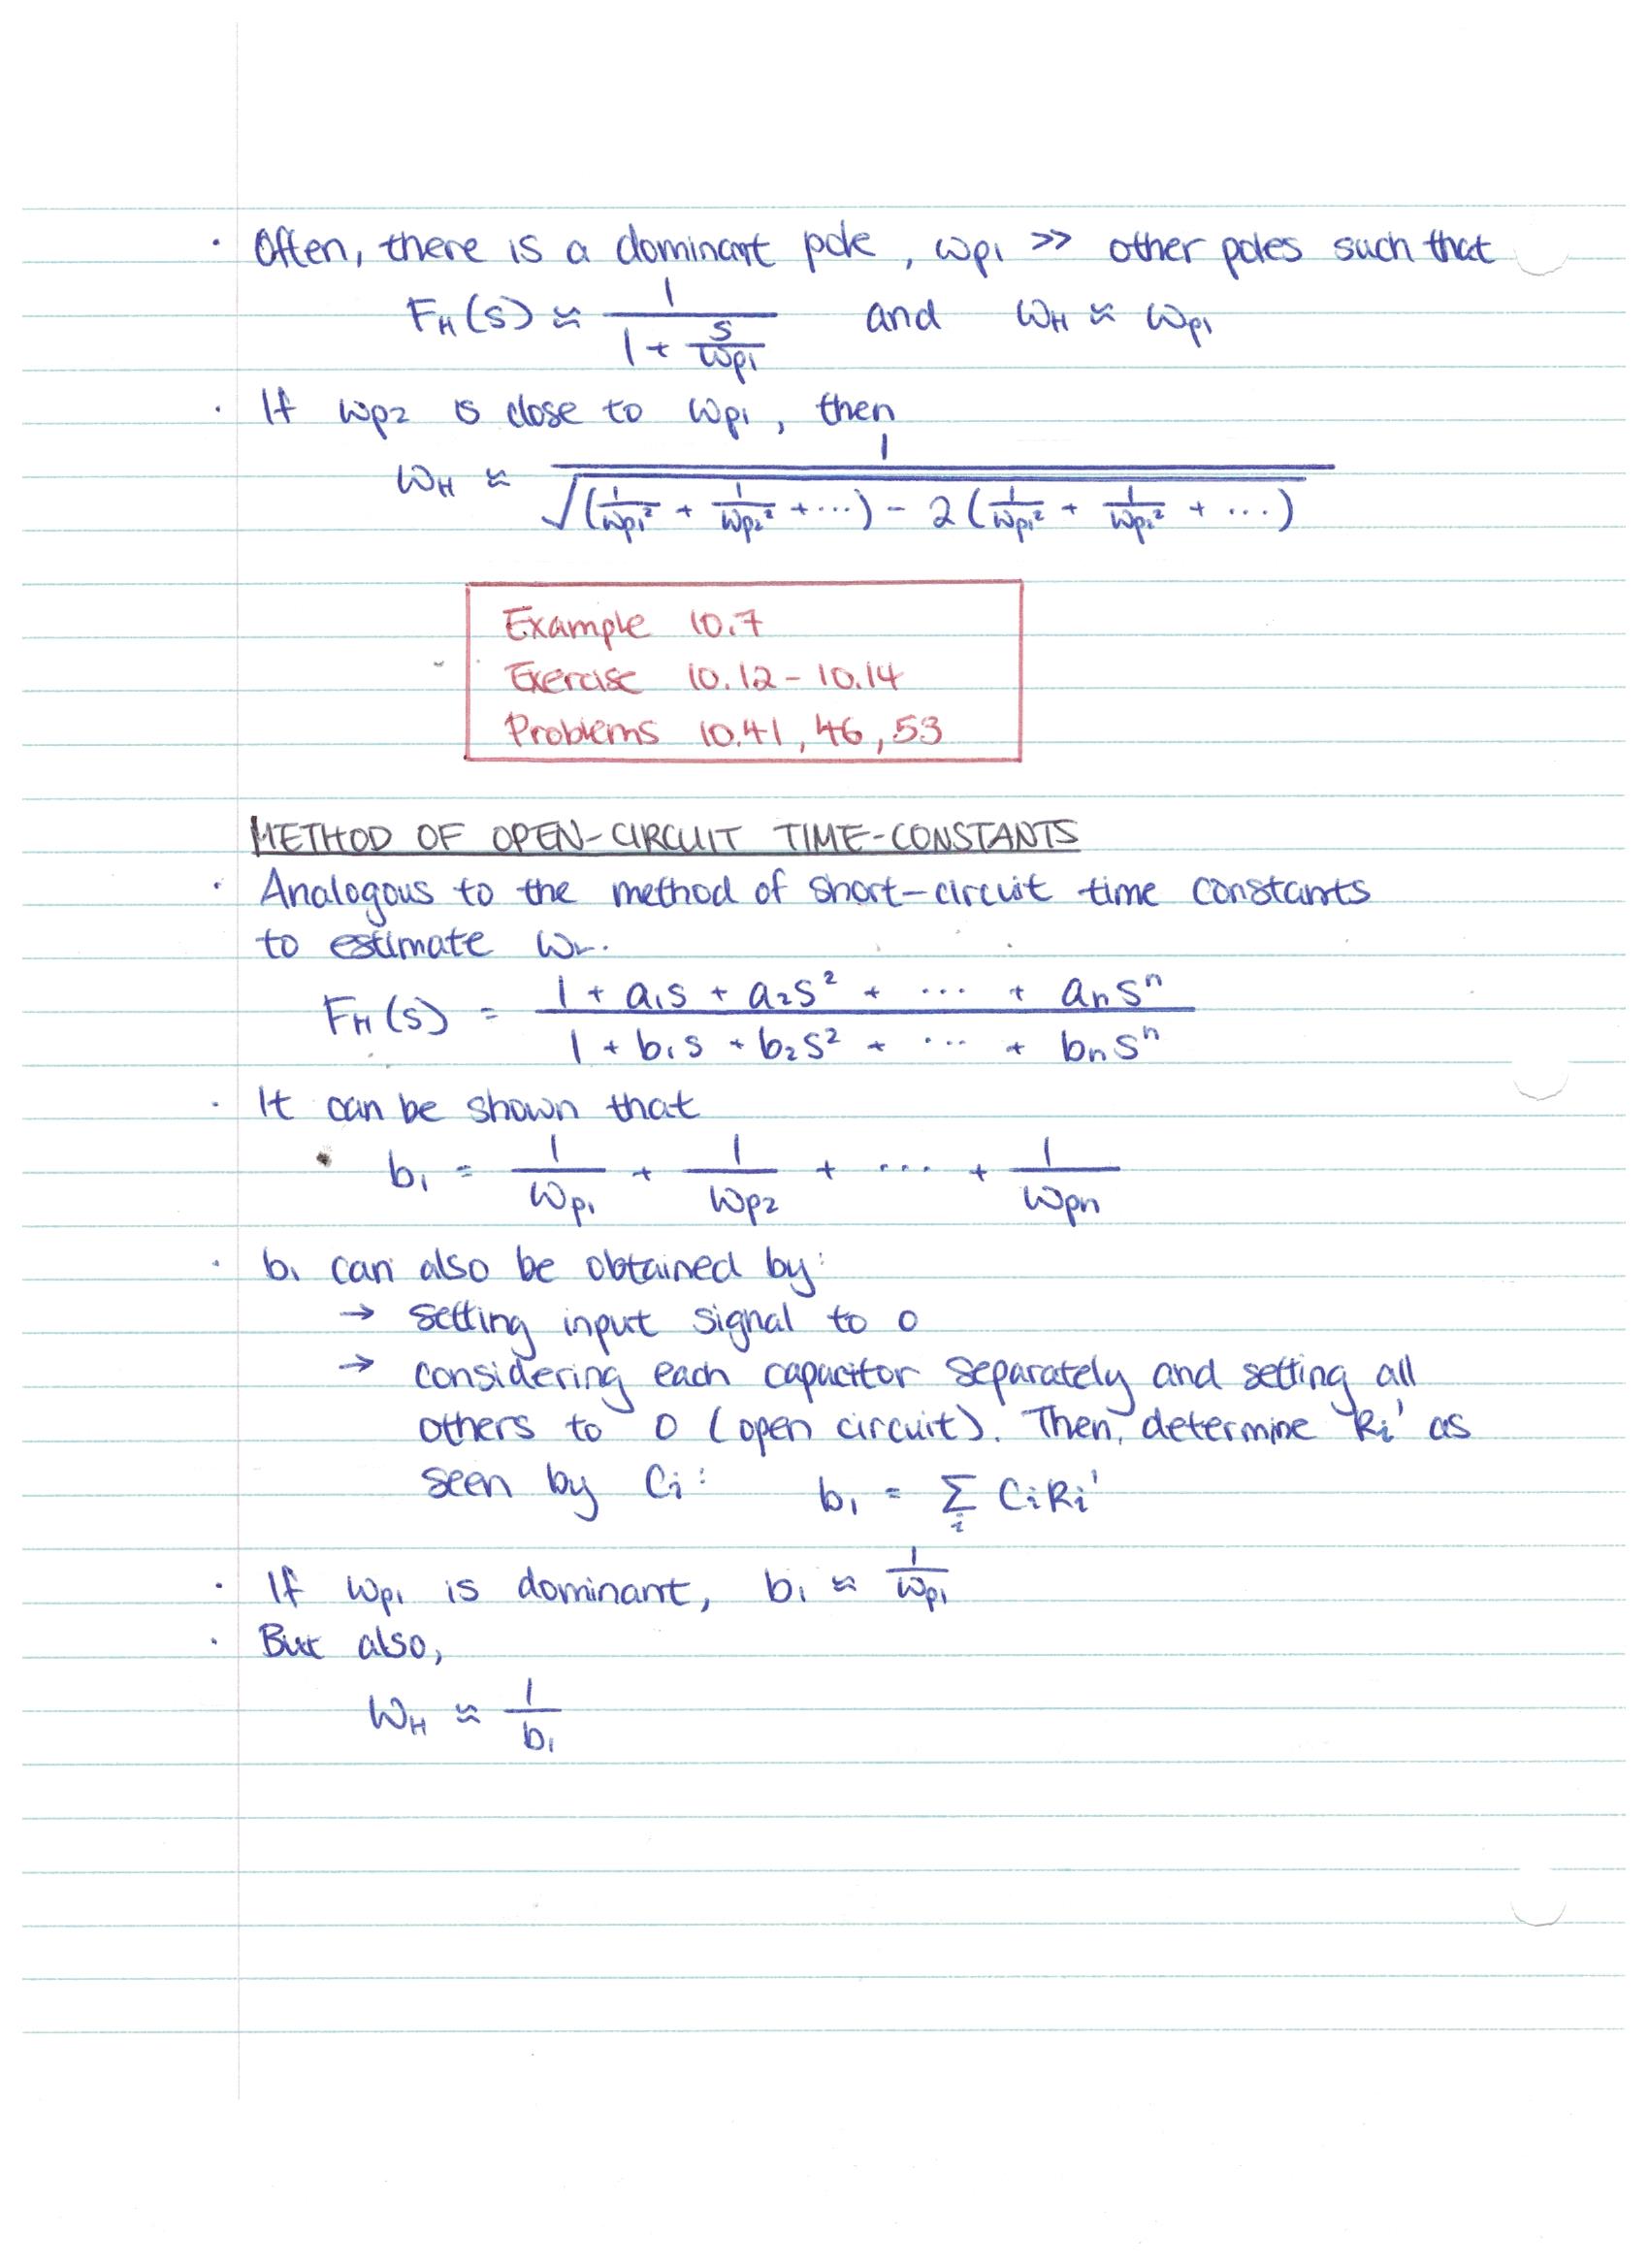 · Often, there is a dominant pole, ωp1 >> other poles such that
FH(s) ≈ 1 / (1 + s/ωp1) and ωH ≈ ωp1
· If ωp2 is close to ωp1, then
ωH ≈ 1 / √((1/ωp1² + 1/ωp2² + ...) - 2(1/ωp1² + 1/ωp2² + ...))
Example 10.7
Exercise 10.12 - 10.14
Problems 10.41, 46, 53
METHOD OF OPEN-CIRCUIT TIME-CONSTANTS
· Analogous to the method of short-circuit time constants
to estimate ωL.
FH(s) = (1 + a1s + a2s² + ... + ansⁿ) / (1 + b1s + b2s² + ... + bnsⁿ)
· It can be shown that
b1 = 1/ωp1 + 1/ωp2 + ... + 1/ωpn
· b1 can also be obtained by:
→ setting input signal to 0
→ considering each capacitor separately and setting all
others to 0 (open circuit). Then, determine Ri' as
seen by Ci: b1 = Σi CiRi'
· If ωp1 is dominant, b1 ≈ 1/ωp1
· But also,
ωH ≈ 1/b1